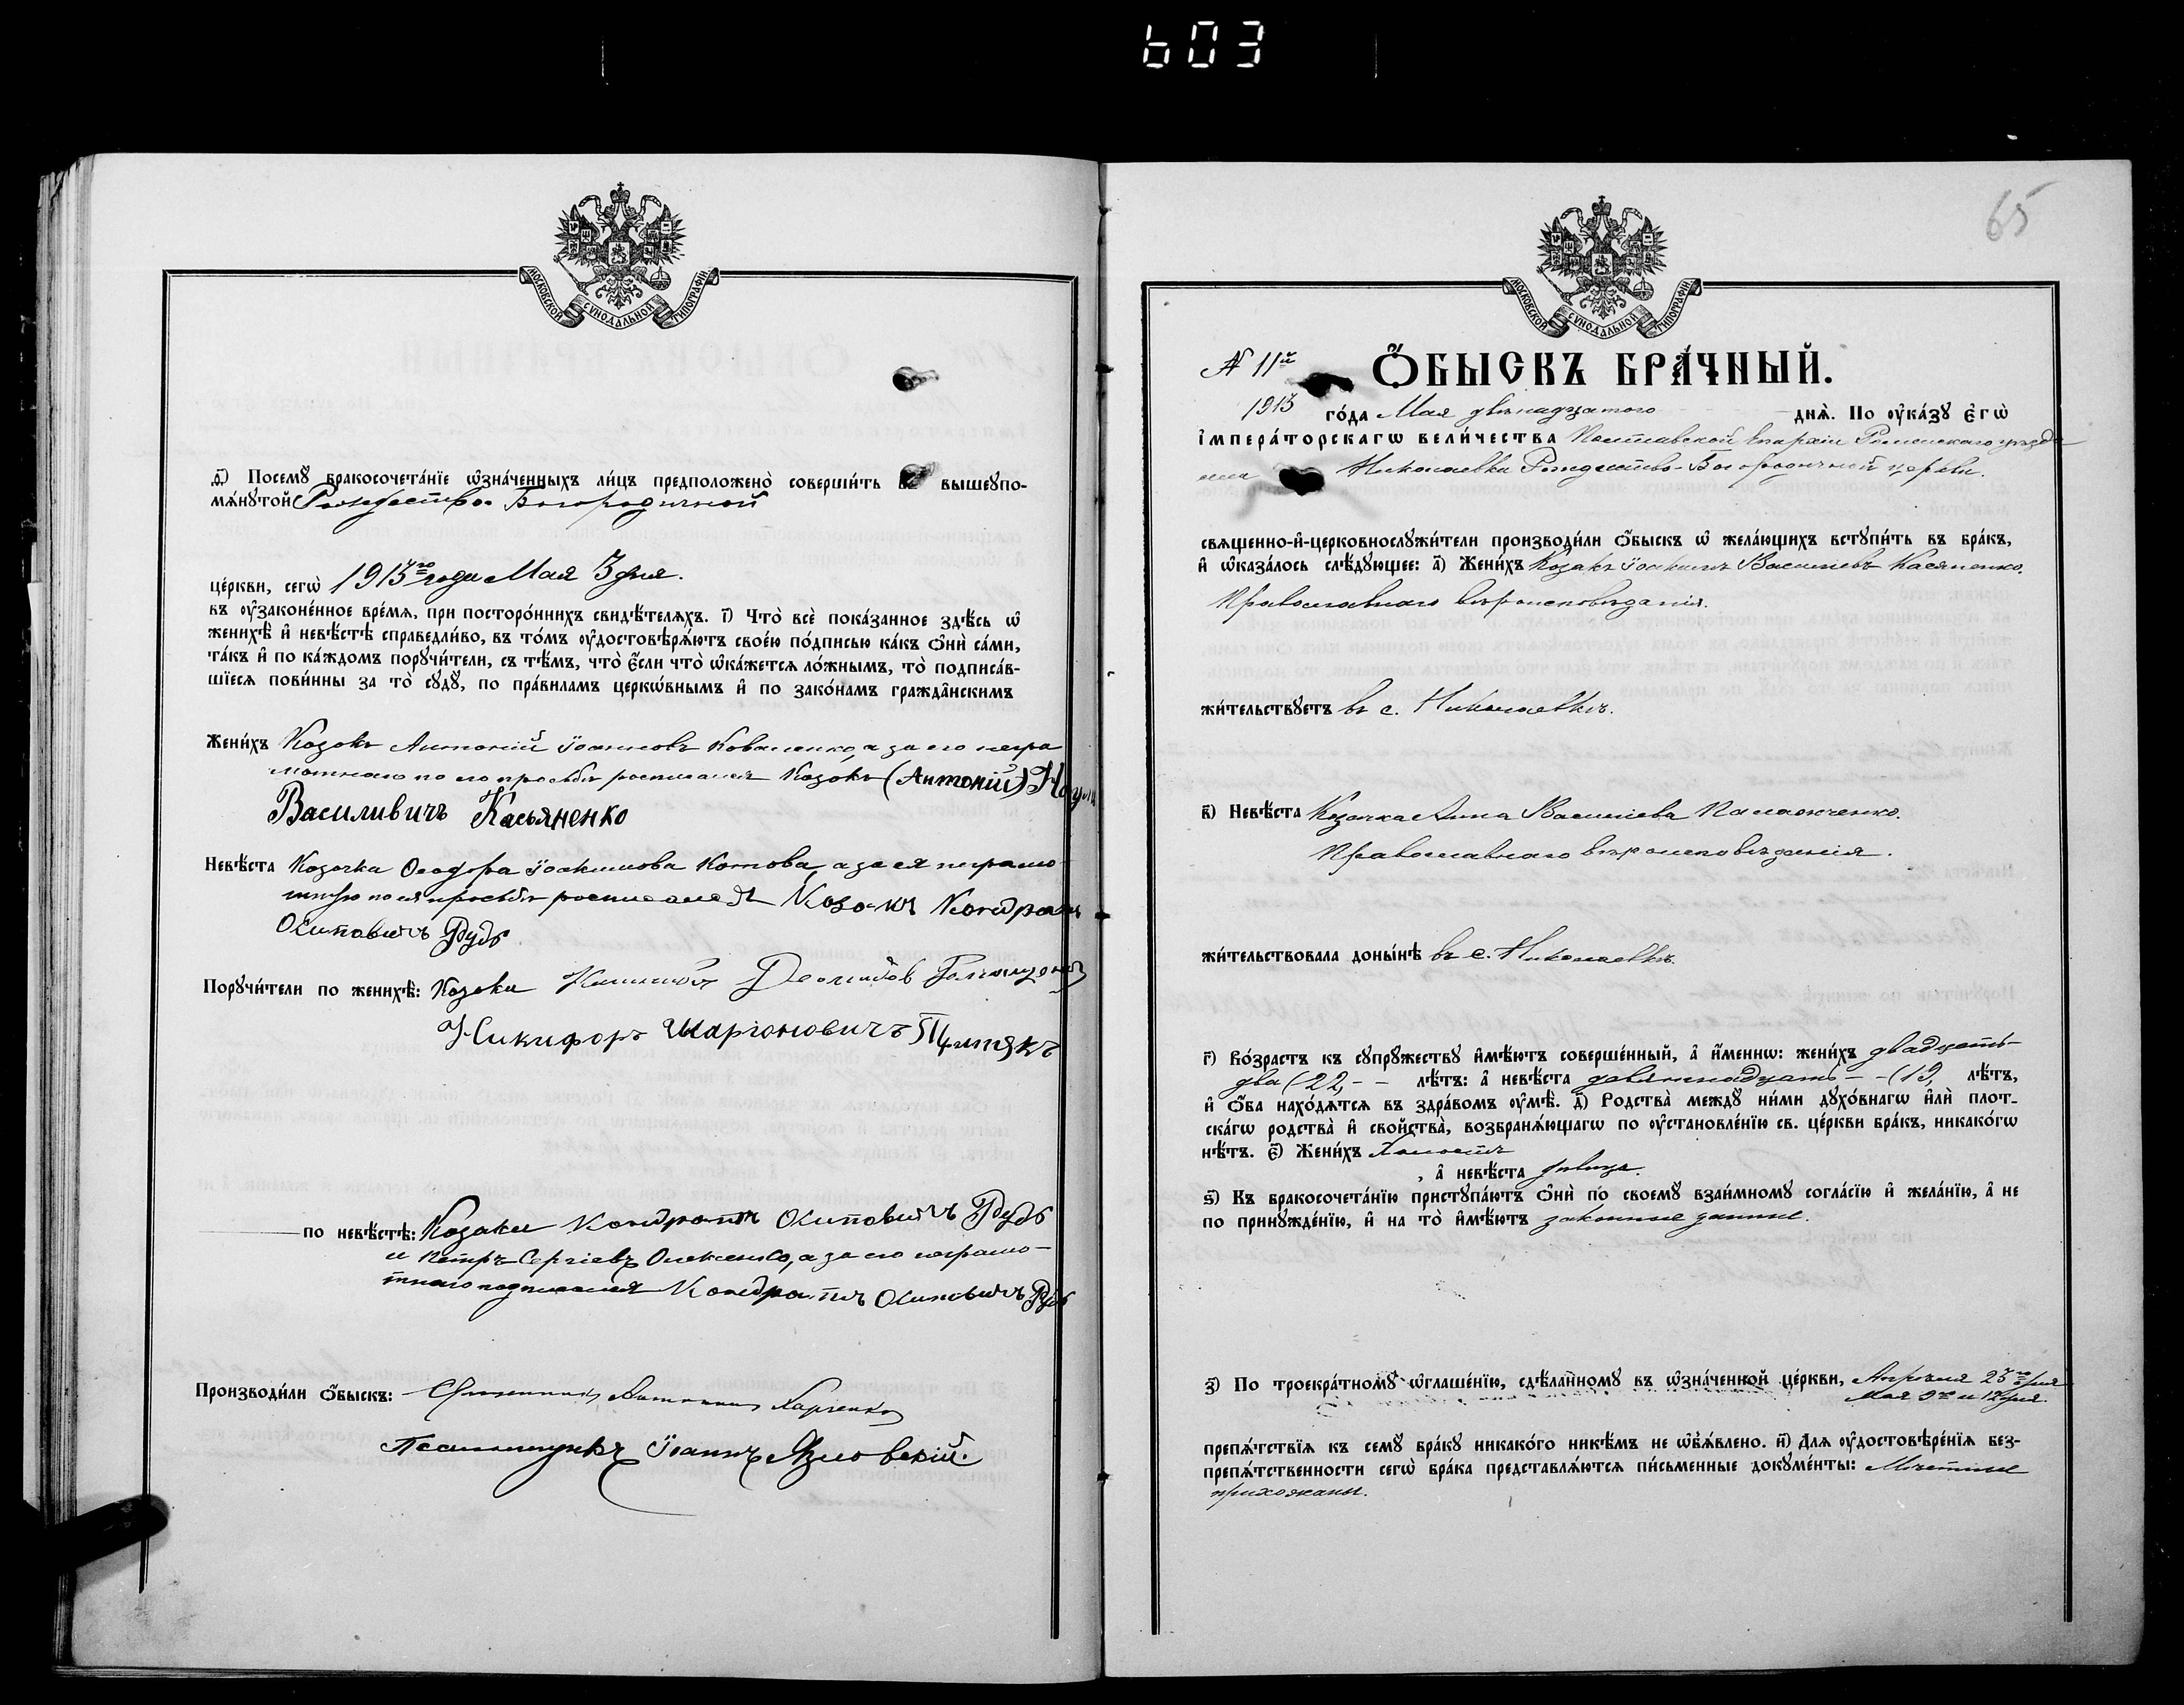 603
МОСКОВСКОЙ СУНОДАЛЬНОЙ ТИПОГРАФІИ
ѳ҃) Посемꙋ бракосочета́нїе ѡ҆зна́ченныхъ ли́цъ предположено̀ соверши́ть въ вышеꙋпо-
мѧ́нꙋтой Рождество-Богородичной
це́ркви, сегѡ̀ 1913го года Мая 3 дня.
въ ᲂу҆законе́нное вре́мѧ, при посторо́ннихъ свидѣ́телѧхъ. і҃) Что̀ всѐ пока́занное здѣ́сь ѡ҆
женихѣ̀ и҆ невѣ́стѣ справедли́во, въ то́мъ ᲂу҆достовѣрѧ́ютъ свое́ю по́дписью ка́къ ѻ҆нѝ са́ми,
та́къ и҆ по ка́ждомъ порꙋчи́тели, съ тѣ́мъ, что̀ є҆́сли что̀ ѡ҆ка́жетсѧ ло́жнымъ, то̀ подписа́в-
шїесѧ пови́нны за то̀ сꙋдꙋ̀, по пра́виламъ церко́внымъ и҆ по зако́намъ гражда̂нскимъ
Жени́хъ Козакъ Антоній Іоанновъ Коваленко, а за его негра
мотнаго по его просьбѣ росписался Козакъ (Антоній)
Василивичъ Касьяненко
Невѣ́ста Козачка Ѳеодора Іоакимова Котова, а за ея неграмо-
тную по ея просьбѣ росписался Козакъ Кондратъ
Осиповичъ Рудь
Порꙋчи́тели по женихѣ̀: Козаки
Никифоръ
по невѣ́стѣ: Козаки Кондратъ Осиповичъ Рудь
и Петръ Сергіевъ Олексенко, а за его неграмо-
тнаго подписался Кондратъ Осиповичъ Рудь
Производи́ли ѻ҆́быскъ: Священникъ Харченко
Псаломщикъ Іоаннъ
65
МОСКОВСКОЙ СУНОДАЛЬНОЙ ТИПОГРАФІИ
№ 11й Ѻ҆́БЫСКЪ БРА́ЧНЫЙ.
1913 го́да Мая двѣнадцатого днѧ̀. По ᲂу҆ка́зꙋ є҆гѡ̀
і҆мпера́торскагѡ вели́чества Полтавской Епархіи Роменскаго уѣзда
села Николаевки Рождество-Богородичной церкви.
свѧщенно-и҆-церковнослꙋжи́тели производи́ли ѻ҆́быскъ ѡ҆ жела́ющихъ встꙋпи́ть въ бра́къ,
и҆ ѡ҆каза́лось слѣ́дꙋющее: а҃) Жени́хъ Козакъ Іоакимъ Василіевъ Касяненко.
Православнаго вѣроисповѣданія.
жи́тельствꙋетъ въ с. Николаевкѣ.
в҃) Невѣ́ста Козачка Анна Василіева
Православнаго вѣроисповѣданія.
жи́тельствовала доны́нѣ въ с. Николаевкѣ.
г҃) Во́зрастъ къ сꙋпрꙋжествꙋ и҆мѣ́ютъ соверше́нный, а҆ и҆́меннѡ: жени́хъ двадцать
два (22, лѣ́тъ: а҆ невѣ́ста девятнадцать (19, лѣ́тъ,
и҆ ѻ҆́ба нахо́дѧтсѧ въ здра́вомъ ᲂу҆мѣ̀. д҃) Родства̀ междꙋ̀ ни́ми дꙋхо́внагѡ и҆лѝ плот-
ска́гѡ родства̀ и҆ сво́йства̀, возбранѧ́ющагѡ по ᲂу҆становле́нїю св. це́ркви бра́къ, никако́гѡ
нѣ́тъ. є҃) Жени́хъ Холостъ
, а҆ невѣ́ста дѣвица.
ѕ҃) Къ бракосочета́нїю пристꙋпа́ютъ ѻ҆нѝ по своемꙋ̀ взаи́мномꙋ согла́сїю и҆ жела́нїю, а҆ не
по принꙋжде́нїю, и҆ на то̀ и҆мѣ́ютъ законные данные.
з҃) По троекра́тномꙋ ѡ҆глаше́нїю, сдѣ́ланномꙋ въ ѡ҆зна́ченной це́ркви, Апрѣля 25го дня
Мая 9го и 12 дня.
препѧ́тствїѧ къ семꙋ̀ бра́кꙋ никако́го никѣ́мъ не ѡ҆б̾ѧ́влено. и҃) Длѧ ᲂу҆достовѣре́нїѧ без-
препѧ́тственности сегѡ̀ бра́ка представлѧ́ютсѧ пи́сьменные докꙋме́нты: Мѣстные
прихожаны.